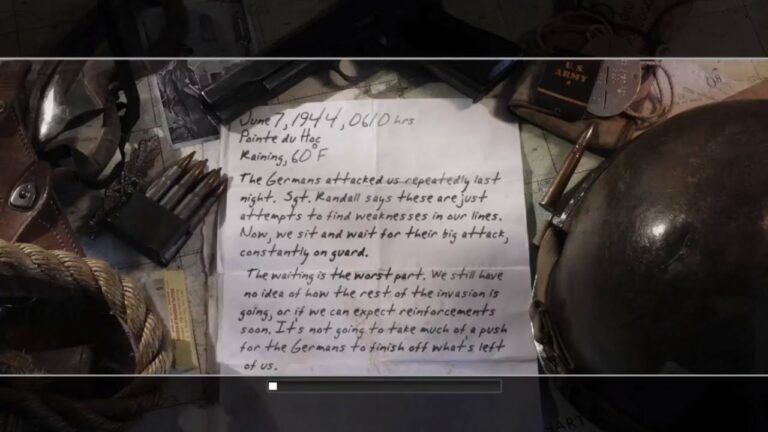 June 7, 1944, 0610 hrs
Pointe du Hoc
Raining, 60°F
The Germans attacked us repeatedly last
night. Sgt. Randall says these are just
attempts to find weaknesses in our lines.
Now, we sit and wait for their big attack,
constantly on guard.
The waiting is the worst part. We still have
no idea of how the rest of the invasion is
going, or if we can expect reinforcements
soon. It's not going to take much of a push
for the Germans to finish off what's left
of us.
U.S.
ARMY